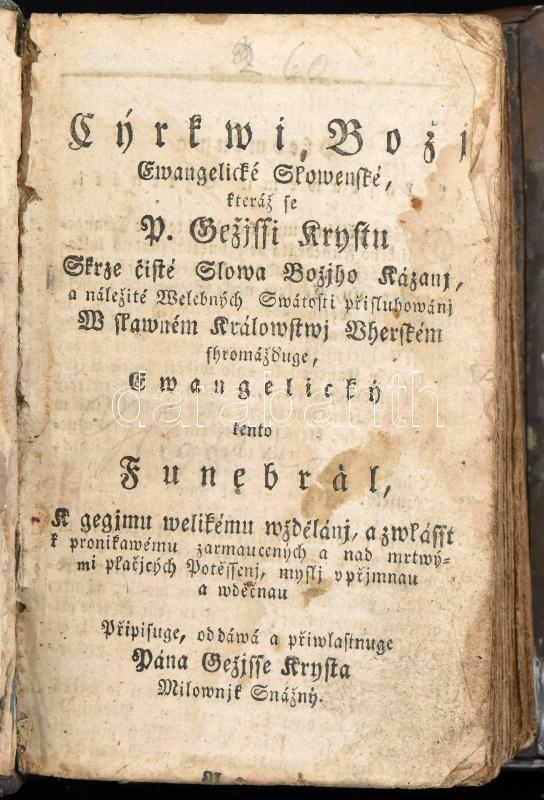 2 60
Cýrkwi Božj
Ewangelické Slowenské,
kteráž se
P. Gežjssi Krystu
Skrze čisté Slowa Božjho Kázanj,
a náležité Welebných Swátosti přisluhowánj
W slawném Králowstwj Vherském
shromážďuge,
Ewangelický
tento
Funebrál,
K gegjmu welikému wzdělánj, a zwlásst
k pronikawému zarmaucených a nad mrtwý-
mi plačjcých Potěssenj, myslj vpřjmnau
a wděčnau
Připisuge, oddáwá a přiwlastnuge
Pána Gežjsse Krysta
Milownjk Snážný.
darabanth